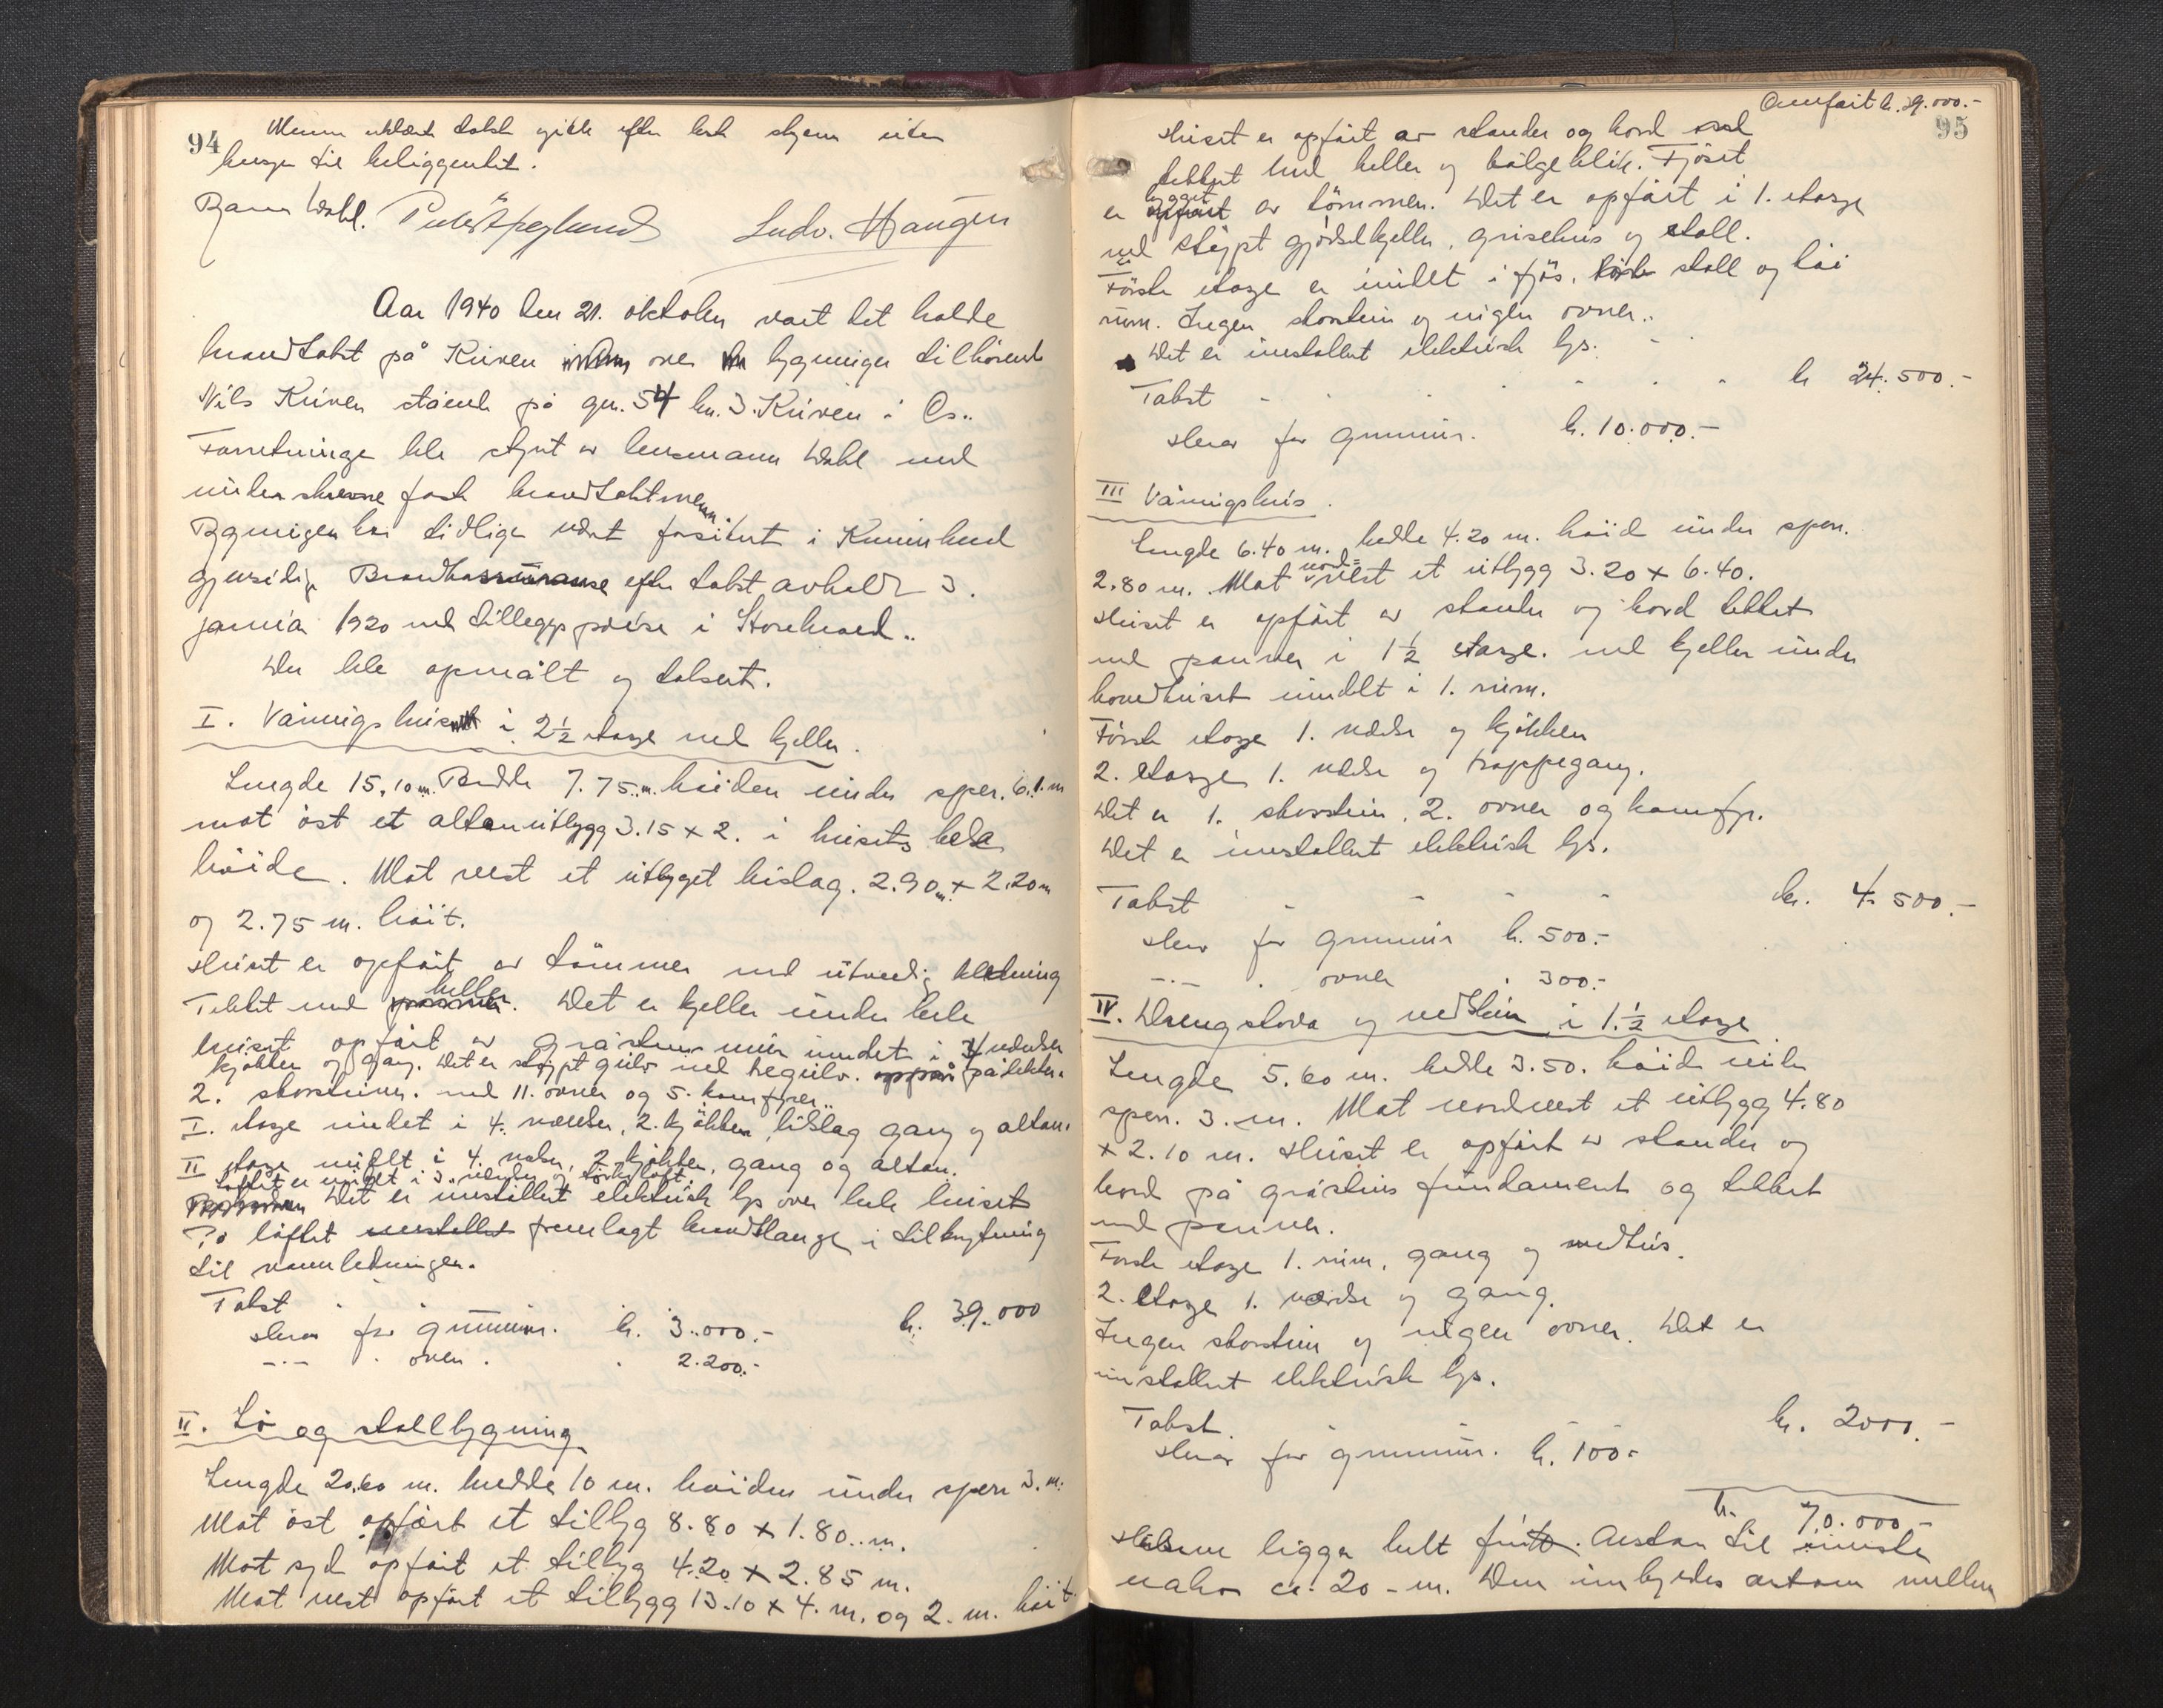 94
Menn erklært takst gitt efter beste skjønn uten
hensyn til beliggenhet.
Bjarne Wahl. Ludv. Haugen
Aar 1940 den 21. oktober vart det halde
brandtakst på Kuven over bygninger tilhørende
Nils Kuven stående på gn. 54 bn. 3. Kuven i Os..
Forretninge ble styrt av lensmann Wahl med
underskrevne faste brandtaktmenn.
Bygningen har tidligere vært forsikret i
gjensidige Brandkasse efter takst avholdt 3.
januar 1920 med tilleggspolise i Storebrand..
Der ble opmålt og taksert.
I. Vånnigshus i 2½ etage med kjeller.
Lengde 15.10 m. Bredde 7.75 m. høiden under sper. 6.1. m
mot øst et altanutbygg 3.15 x 2. i husets hele
høide. Mot vest et utbyget bislag. 2.90 m. x 2.20 m
og 2.75 m. høit.
Huset er opført av tømmer med utvendig kledning
Tekket med heller. Det er kjeller under hele
huset opført av gråstens mur inndet i 4 værelser
kjøkken og gang. Det er støypt gulv med tregulv. på
2. skorsteiner. med 11. ovner og 5. komfyrer..
I. etage inndet i 4. værelser, 2. kjøkken, bislag gang og altan.
II etage inndelt i 4. værelser, 2 kjøkken, gang og altan.
Loftet er inndelt i 3. værelser og tørkeloft.
Det er installert elektrisk lys over hele huset
På loftet fremlagt brandslange i tilknytning
til vannledningen.
Takst kr. 39.000
Herav for grunnmur. kr. 3.000.-
-.- . ovner . . 2.200.-
II. Lø og stallbygning
Lengde 20.60 m. bredde 10 m. høiden under sper 3. m.
Mot øst opført et tilbyg 8.80 x 1.80 m.
Mot syd opført et tilbyg 4.20 x 2.85 m.
Mot vest opført et tilbygg 13.10 x 4. m. og 2. m. høit.
Omført kr. 39.000.-
95
Huset er opført av stander og bord
tekket med heller og bølgeblik. Fjøset
er bygget av tømmer. Det er opført i 1. etasje
med støypt gjødselkjeller, grisehus og stall.
Første etage er inndelt i fjøs, stall og høi
rum. Ingen skorstein og ingen ovner..
Det er installert elektrisk lys.
Takst kr 24.500.-
Herav for grunnmur. kr. 10.000.-
III Vånnigshus.
Lengde 6.40 m. bredde 4.20 m. høid under sper.
2.80 m. Mot nord-vest et utbygg 3.20 x 6.40.
Huset er opført av stander og bord tekket
med panner i 1½ etasje. med kjeller under
hovedhuset inndelt i 1. rum.
Første etage 1. værelse og kjøkken
2. etasje 1. værelse og trappegang.
Det er 1. skorstein, 2. ovner og komfyr.
Det er installert elektrisk lys.
Takst kr. 4.500.-
Herav for grunnmur kr. 500.-
-.- . ovner . 300.-
IV. Drengstova og vedskur i 1.½ etage
Lengde 5.60 m. bredde 3.50. høid under
sper. 3. m. Mot nordvest et utbygg 4.80
x 2.10 m. Huset er opført av stander og
bord på gråsteins fundament og tekket
med panner.
Første etage 1. rum, gang og vedhus.
2. Etage 1. værelse og gang.
Ingen skorstein og ingen ovner. Det er
installert elektrisk lys.
Takst. kr. 2000.-
Herav for grunnmur. kr. 100.-
kr. 70.000-
Husene ligger helt fritt. Avstan til nærmeste
nabo ca. 20 - m. Den innbyrdes avstann mellem